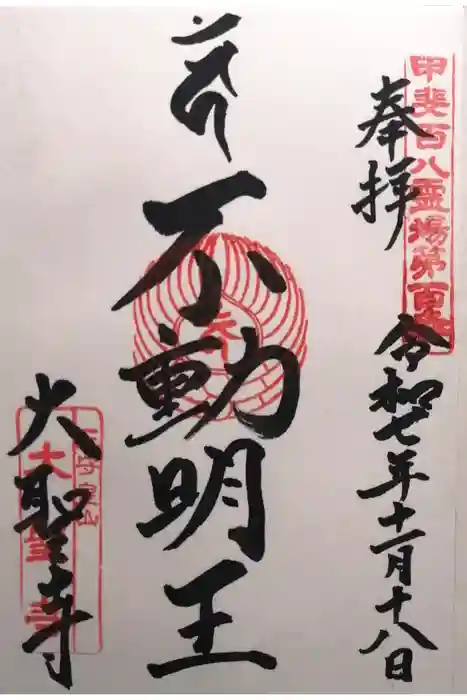 甲斐百八霊場第百
奉拝
令和七年十一月十八日
不動明王
大聖寺
大聖寺